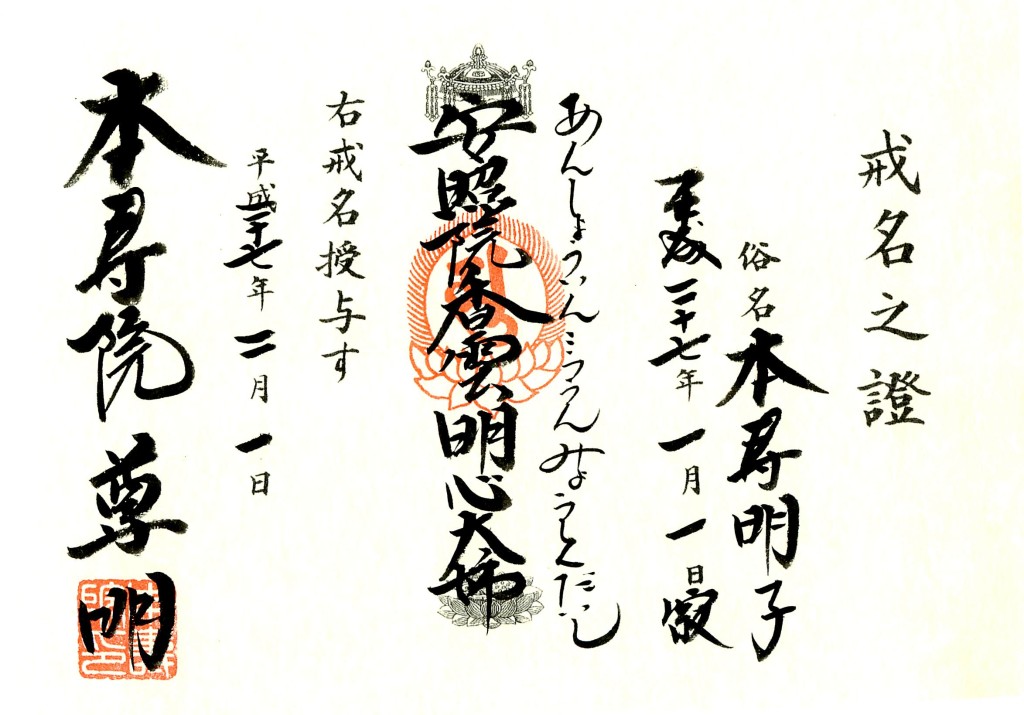 戒名之證
俗名 本尋明子
平成二十七年一月一日寂
あんしょういんこううんみょうしんだいし
安照院香雲明心大姉
右戒名授与す
平成二十七年二月一日
本尋院尊明